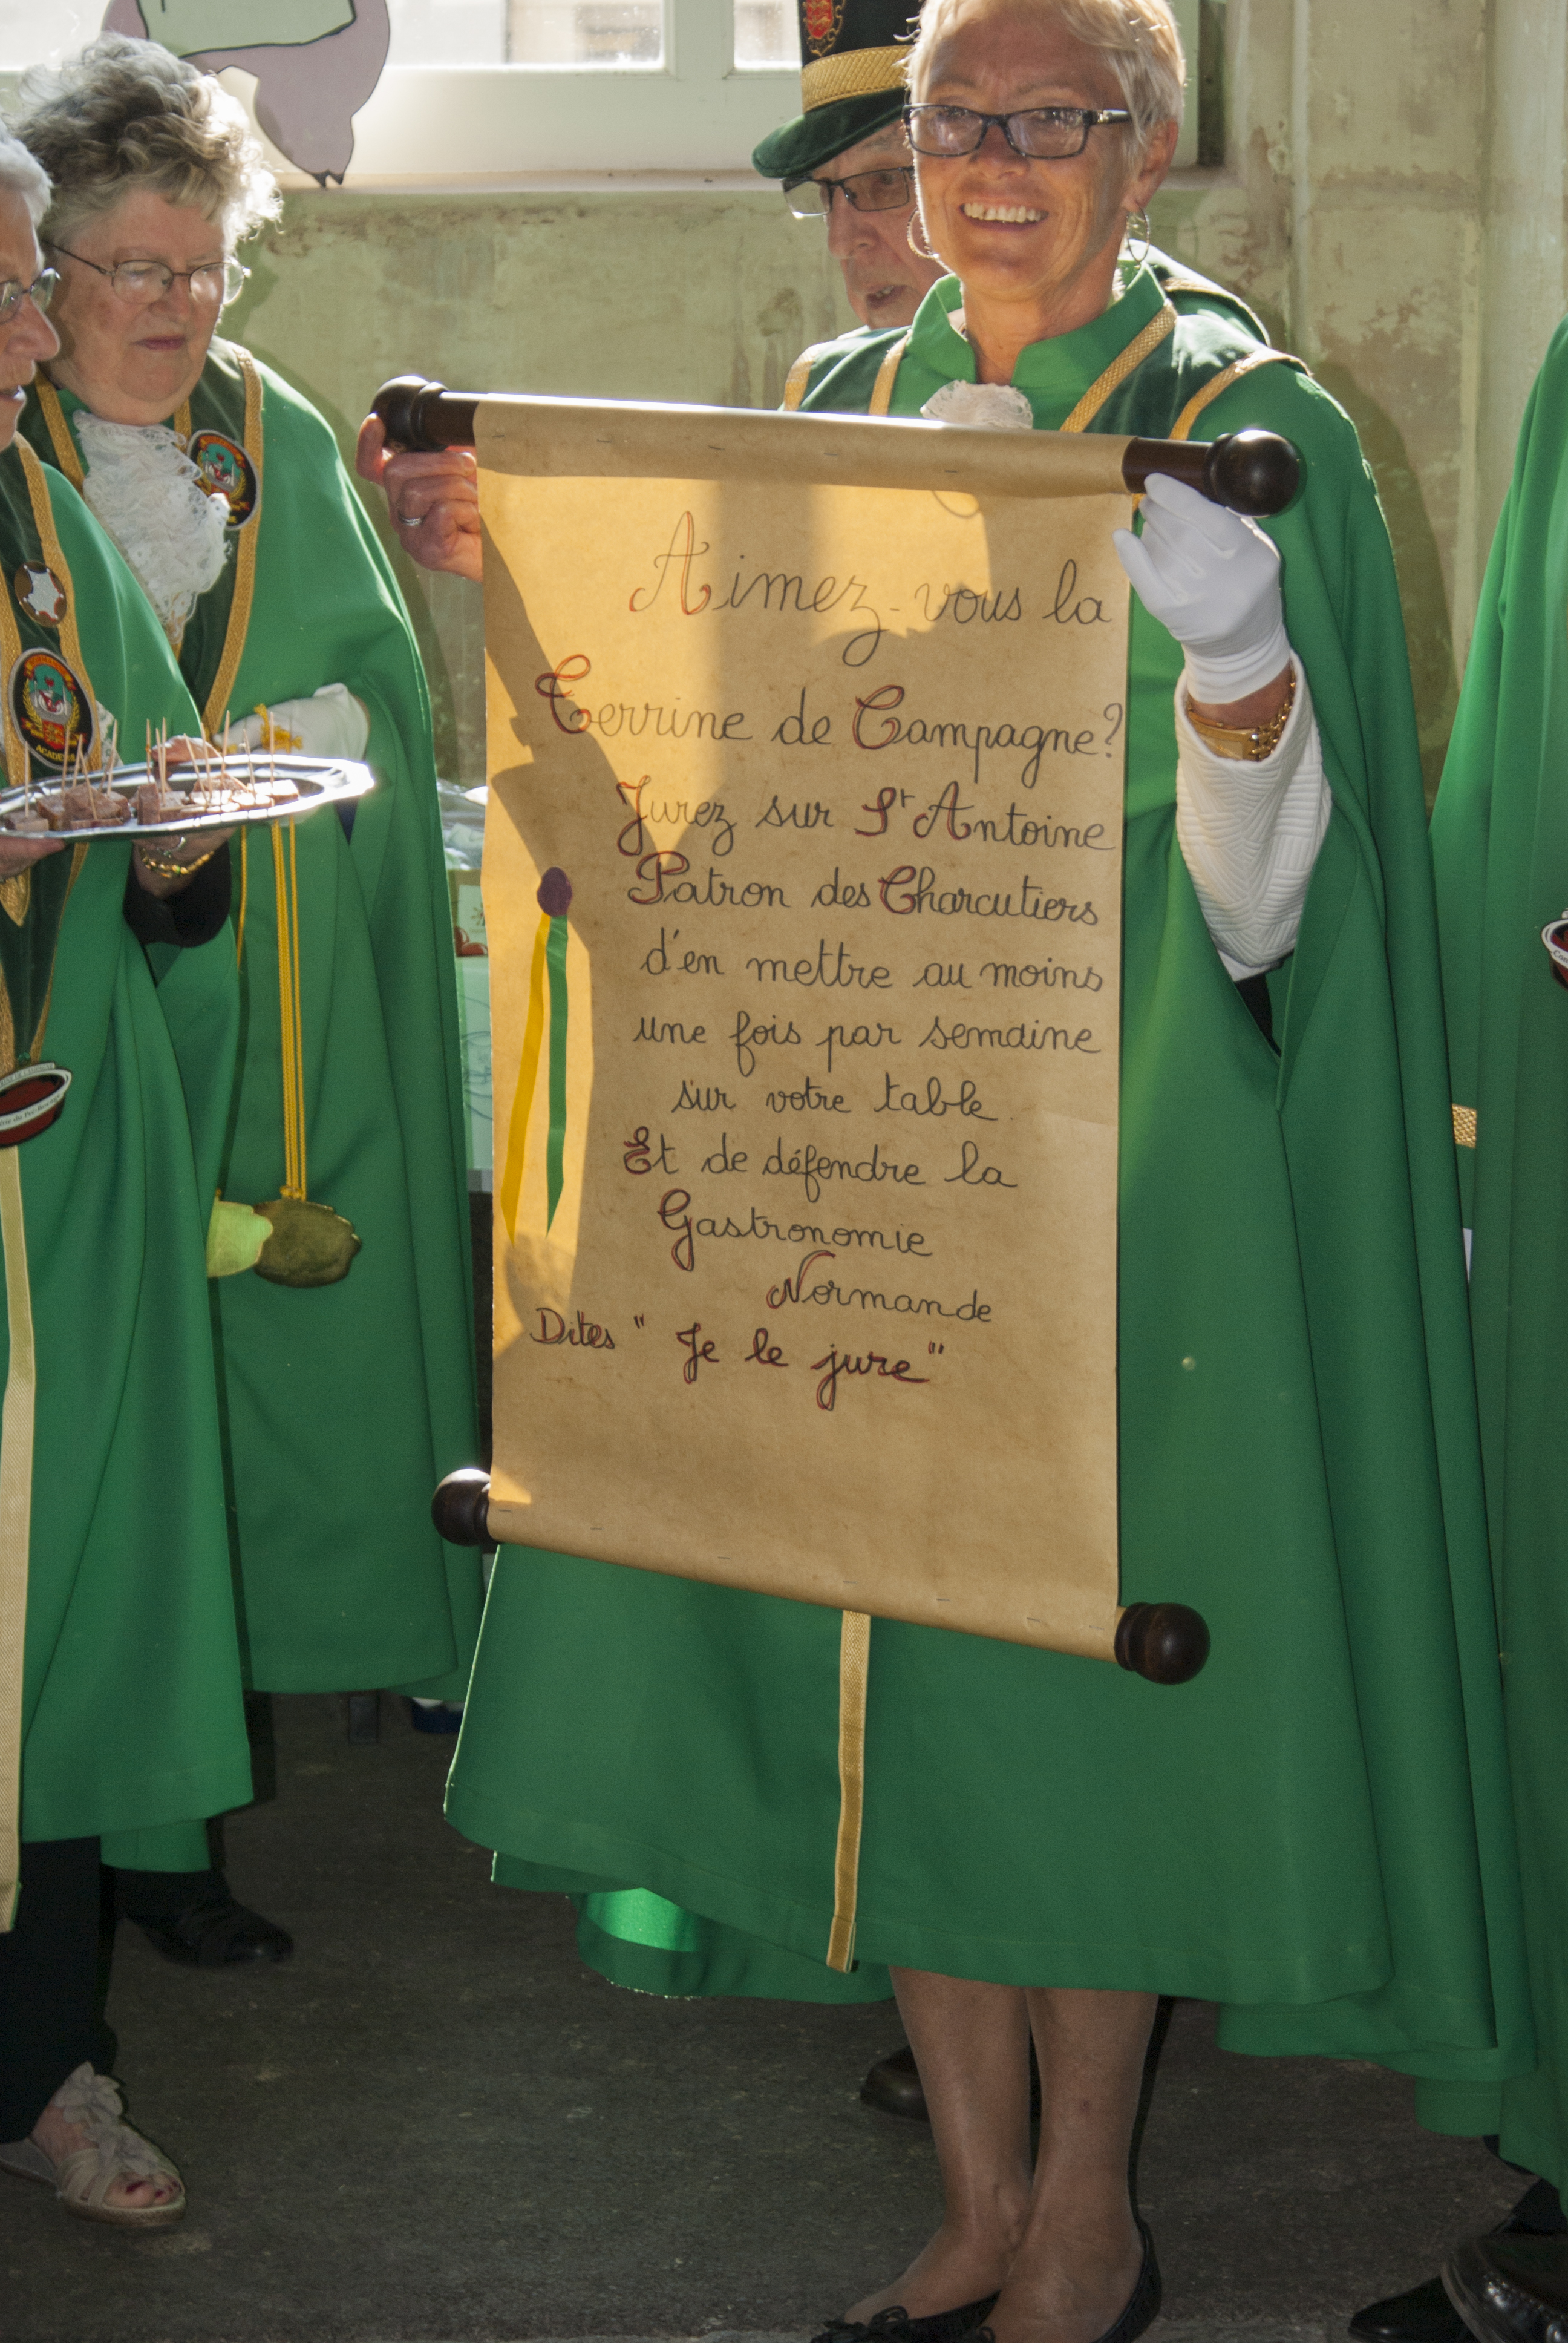 Aimez-vous la
Terrine de Campagne?
Jurez sur St Antoine
Patron des Charcutiers
d'en mettre au moins
une fois par semaine
sur votre table
Et de défendre la
Gastronomie
Normande
Dites " Je le jure "